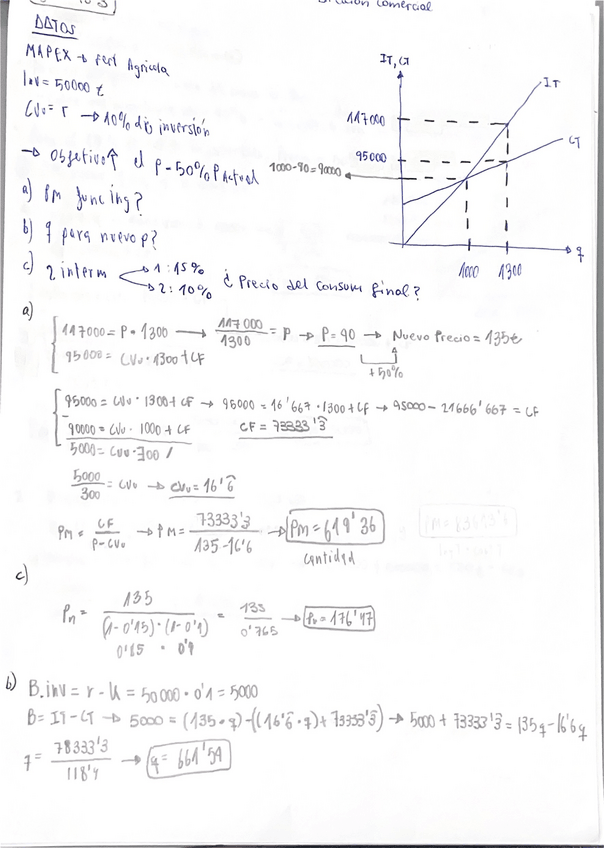 Dirección comercial
DATOS
MAPEX → fert Agrícola
Inv = 50000 €
CVu = r → 10% dis inversión
→ Objetivo ↑ el P = 50% P Actual
a) Pm func ing?
b) q para nuevo p?
c) 2 interm → 1: 15%
→ 2: 10%
¿ Precio del consum final?
IT, CT
IT
117000
CT
95000
1000 · 90 = 90000
1000 1300
q
a)
117000 = P · 1300 → 117000 / 1300 = P → P = 90 → Nuevo Precio = 135€
95000 = CVu · 1300 + CF
+50%
95000 = CVu · 1300 + CF → 95000 = 16'667 · 1300 + CF → 95000 - 21666'667 = CF
90000 = CVu · 1000 + CF
CF = 73333'3
5000 = CVu · 300 /
5000 / 300 = CVu → CVu = 16'6
PM = CF / P - CVu → PM = 73333'3 / 135 - 16'6 → PM = 619'36
Cantidad
c)
Pn = 135 / (1 - 0'15) · (1 - 0'1) = 135 / 0'765 → Pv = 176'47
0'85 · 0'9
b) B.inv = r · k = 50000 · 0'1 = 5000
B = IT - CT → 5000 = (135 · q) - ((16'6 · q) + 73333'3) → 5000 + 73333'3 = 135q - 16'6q
q = 78333'3 / 118'4 → q = 661'54